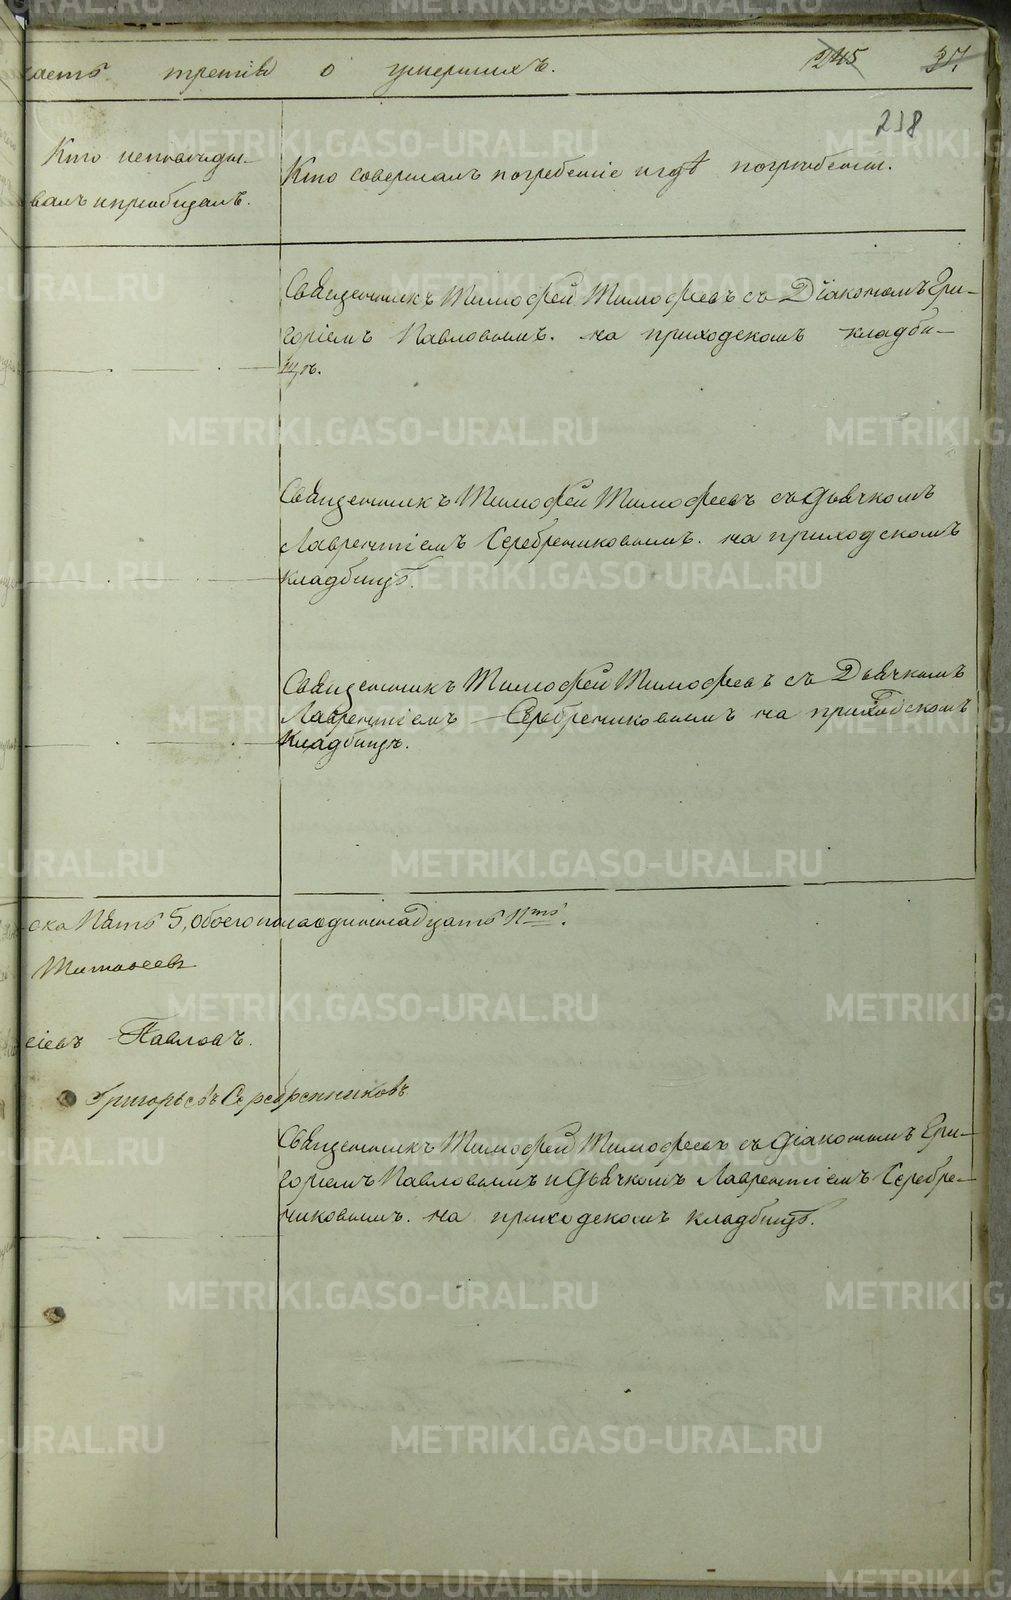 часть третія о умершихъ. 245 37
218
Кто исповѣды-
валъ и пріобщалъ.
Кто совершалъ погребеніе и гдѣ погребены.
Священникъ Тимофей Тимофеевъ съ Діакономъ Гри-
горіемъ Павловымъ. на приходскомъ кладби-
щѣ.
Священникъ Тимофей Тимофеевъ съ дьячкомъ
Лаврентіемъ Серебрениковымъ. на приходскомъ
кладбищѣ.
Священникъ Тимофей Тимофеевъ съ Дьячкомъ
Лаврентіемъ Серебрениковымъ на приходскомъ
Кладбищѣ.
ска Пять 5, обоего пола одиннадцать 11ть.
Тимофеевъ
сіевъ Павловъ.
Григорьевъ Серебренниковъ
Священникъ Тимофей Тимофеевъ съ діакономъ Гри-
горіемъ Павловымъ и дьячкомъ Лаврентіемъ Серебре-
никовымъ. на приходскомъ кладбищѣ.
METRIKI.GASO-URAL.RU